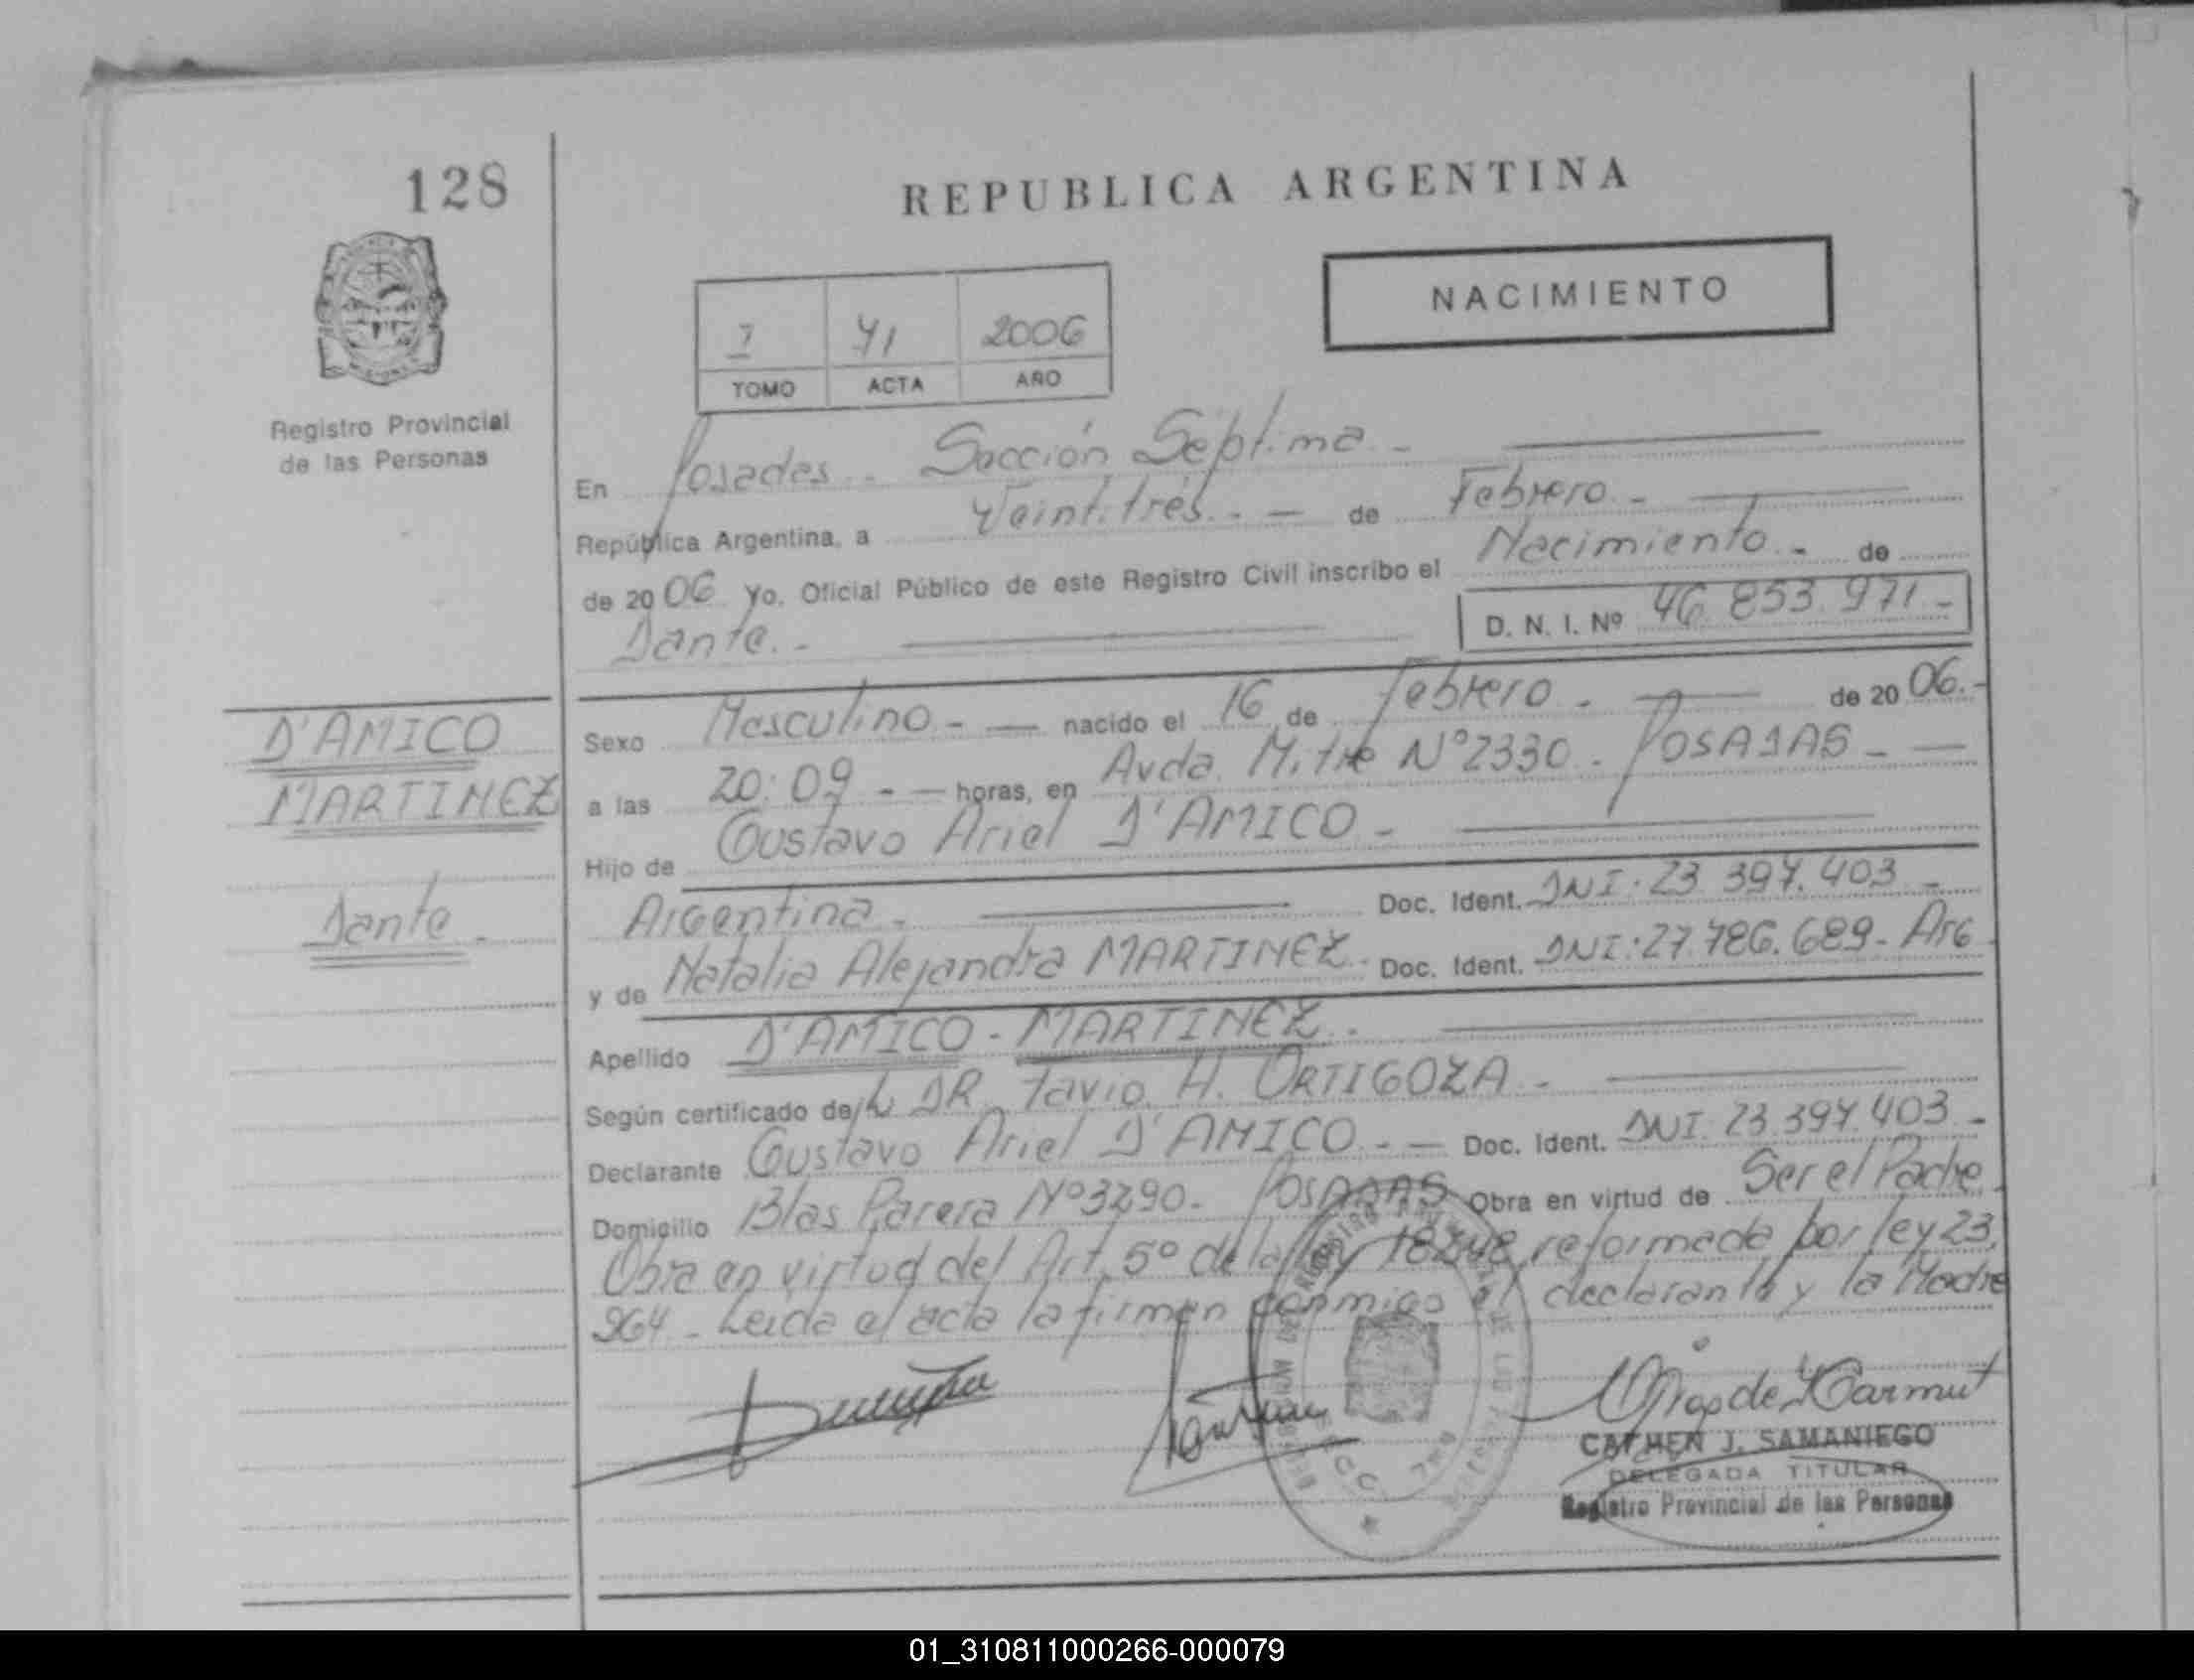 128
REPUBLICA ARGENTINA
NACIMIENTO
71 2006
TOMO ACTA AÑO
Registro Provincial
de las Personas
En Posadas - Sección Séptima -
República Argentina, a Veintitrés - de Febrero -
de 2006 yo, Oficial Público de este Registro Civil inscribo el Nacimiento - de
Dante.- D. N. I. Nº 46.853.971-
D'AMICO
MARTINEZ
Dante -
Sexo Masculino - nacido el 16 de Febrero - de 2006.-
a las 20:09 - horas, en Avda. Mitre Nº 2330 - POSADAS -
Hijo de Gustavo Ariel D'AMICO -
Argentina - Doc. Ident. DNI: 23.397.403 -
y de Natalia Alejandra MARTINEZ - Doc. Ident. DNI: 27.786.689 - Arg
Apellido D'AMICO - MARTINEZ -
Según certificado de DR. H. ORTIGOZA -
Declarante Gustavo Ariel D'AMICO - Doc. Ident. DNI. 23.397.403 -
Domicilio Blas Parera Nº 3290 - POSADAS Obra en virtud de Ser el Padre.
Obra en virtud del Art. 5º de la ley 18248, reformada por ley 23.
264 - Leida el acta la firman conmigo el declarante y la Madre
CARMEN J. SAMANIEGO
DELEGADA TITULAR
Registro Provincial de las Personas
01_310811000266-000079